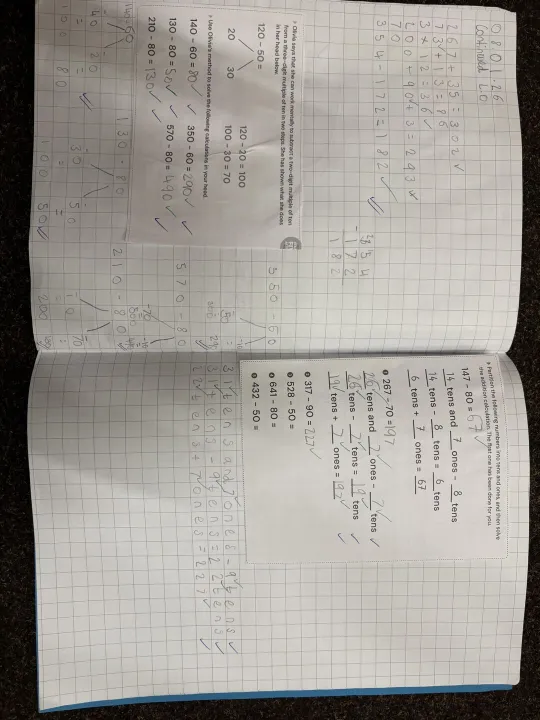 08.01.26
Continued LO
267 + 35 = 302
73 + 13 = 86
3 × 12 = 36
200 + 90 + 3 = 293
70
354 - 172 = 182
354
- 172
182
Olivia says that she can work mentally to subtract a two-digit multiple of ten
from a three-digit multiple of ten in two steps. She has shown what she does
in her head below.
120 – 50 =
20 30
120 – 20 = 100
100 – 30 = 70
Use Olivia's method to solve the following calculations in your head.
140 – 60 = 80
350 – 60 = 290
130 – 80 = 50
570 – 80 = 490
210 – 80 = 130
40 20
100 80
130 - 80
30 50
100 50
210 - 80
10 70
200
550 - 60
570 - 80
Partition the following numbers into tens and ones, and then solve
the addition calculation. The first one has been done for you.
147 – 80 = 67
14 tens and 7 ones – 8 tens
14 tens – 8 tens = 6 tens
6 tens + 7 ones = 67
267 – 70 = 197
26 tens and 7 ones – 7 tens
26 tens – 7 tens = 19 tens
19 tens + 7 ones = 197
317 – 90 = 227
528 – 50 =
641 – 80 =
432 – 50 =
31 tens and 7 ones - 9 tens
31 tens - 9 tens = 22 tens
22 tens + 7 ones = 227